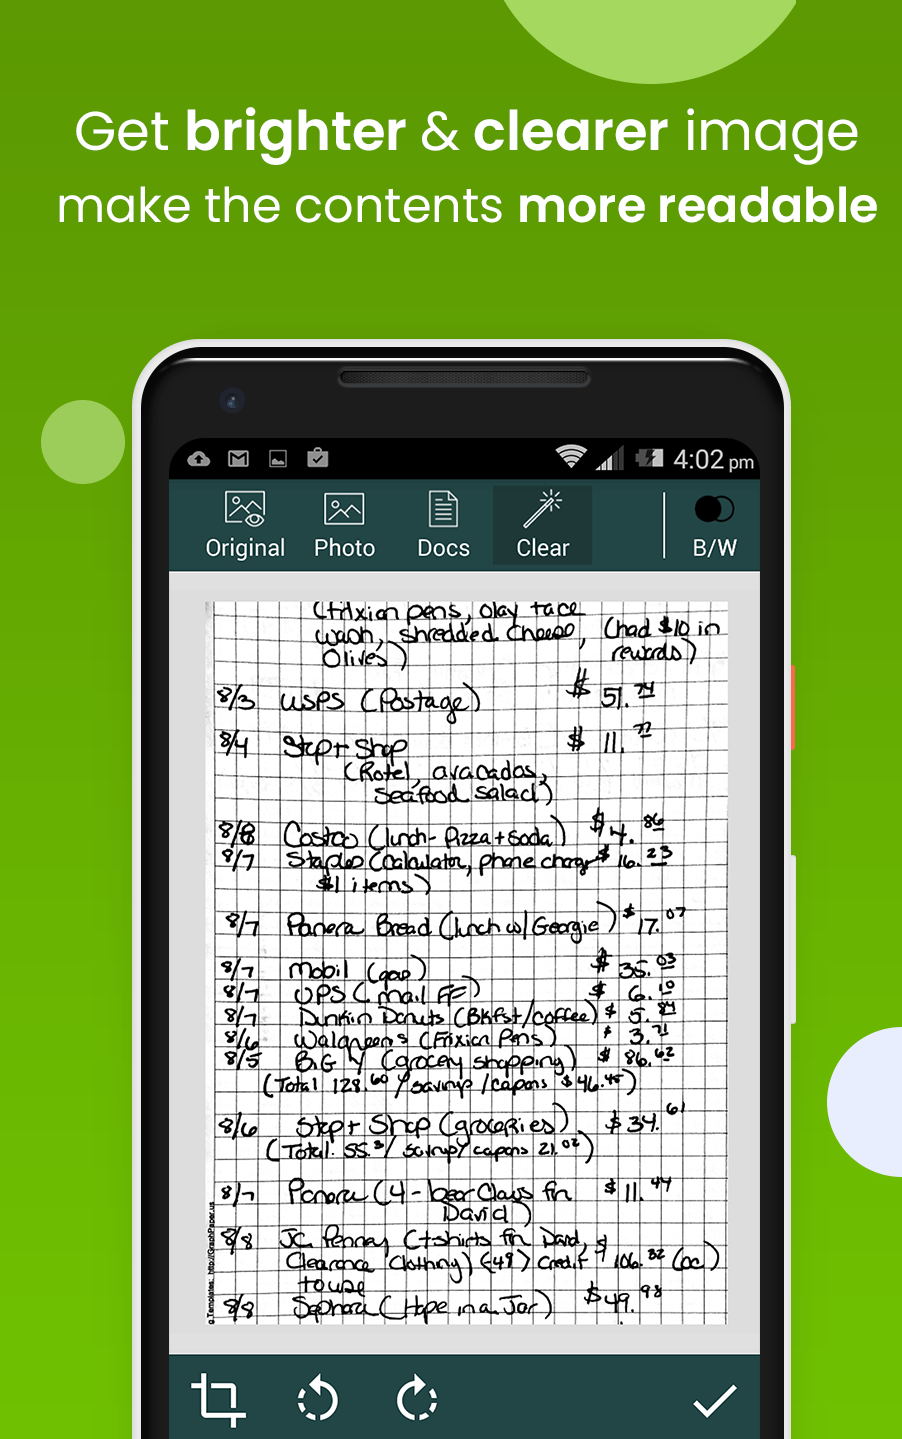 Get brighter & clearer image
make the contents more readable
4:02 pm
Original Photo Docs Clear B/W
(frixion pens, olay face
wash, shredded cheese, (had $10 in
Olives) rewards)
8/3 USPS (Postage) $ 51.74
8/4 Stop+Shop $ 11.77
(Rotel, avacados,
seafood salad)
8/8 Costco (lunch-Pizza+soda) $4.86
8/7 Staples (calculator, phone charger $16.23
$1 items)
8/7 Panera Bread (lunch w/ Georgie) $17.07
8/7 Mobil (gas) $ 35.03
8/7 UPS (mail FF) $ 6.10
8/7 Dunkin Donuts (Bkfst/coffee) $ 5.84
8/6 Walgreens (Frixion Pens) $ 3.71
8/5 BIG Y (grocery shopping) $ 86.62
(Total 128.60 / savings/capons $46.45)
8/6 Stop+Shop (groceries) $34.61
(Total: 55. / savings/capons 21.02)
8/7 Panera (4-bear claws for $11.44
David)
8/8 JC Penney (tshirts for David, $
Clearance Clothing) (-49) credit 106.32 (cc)
to use
8/8 Sephora (Hope in a Jar) $49.98
Templates: http://GraphPaper.us